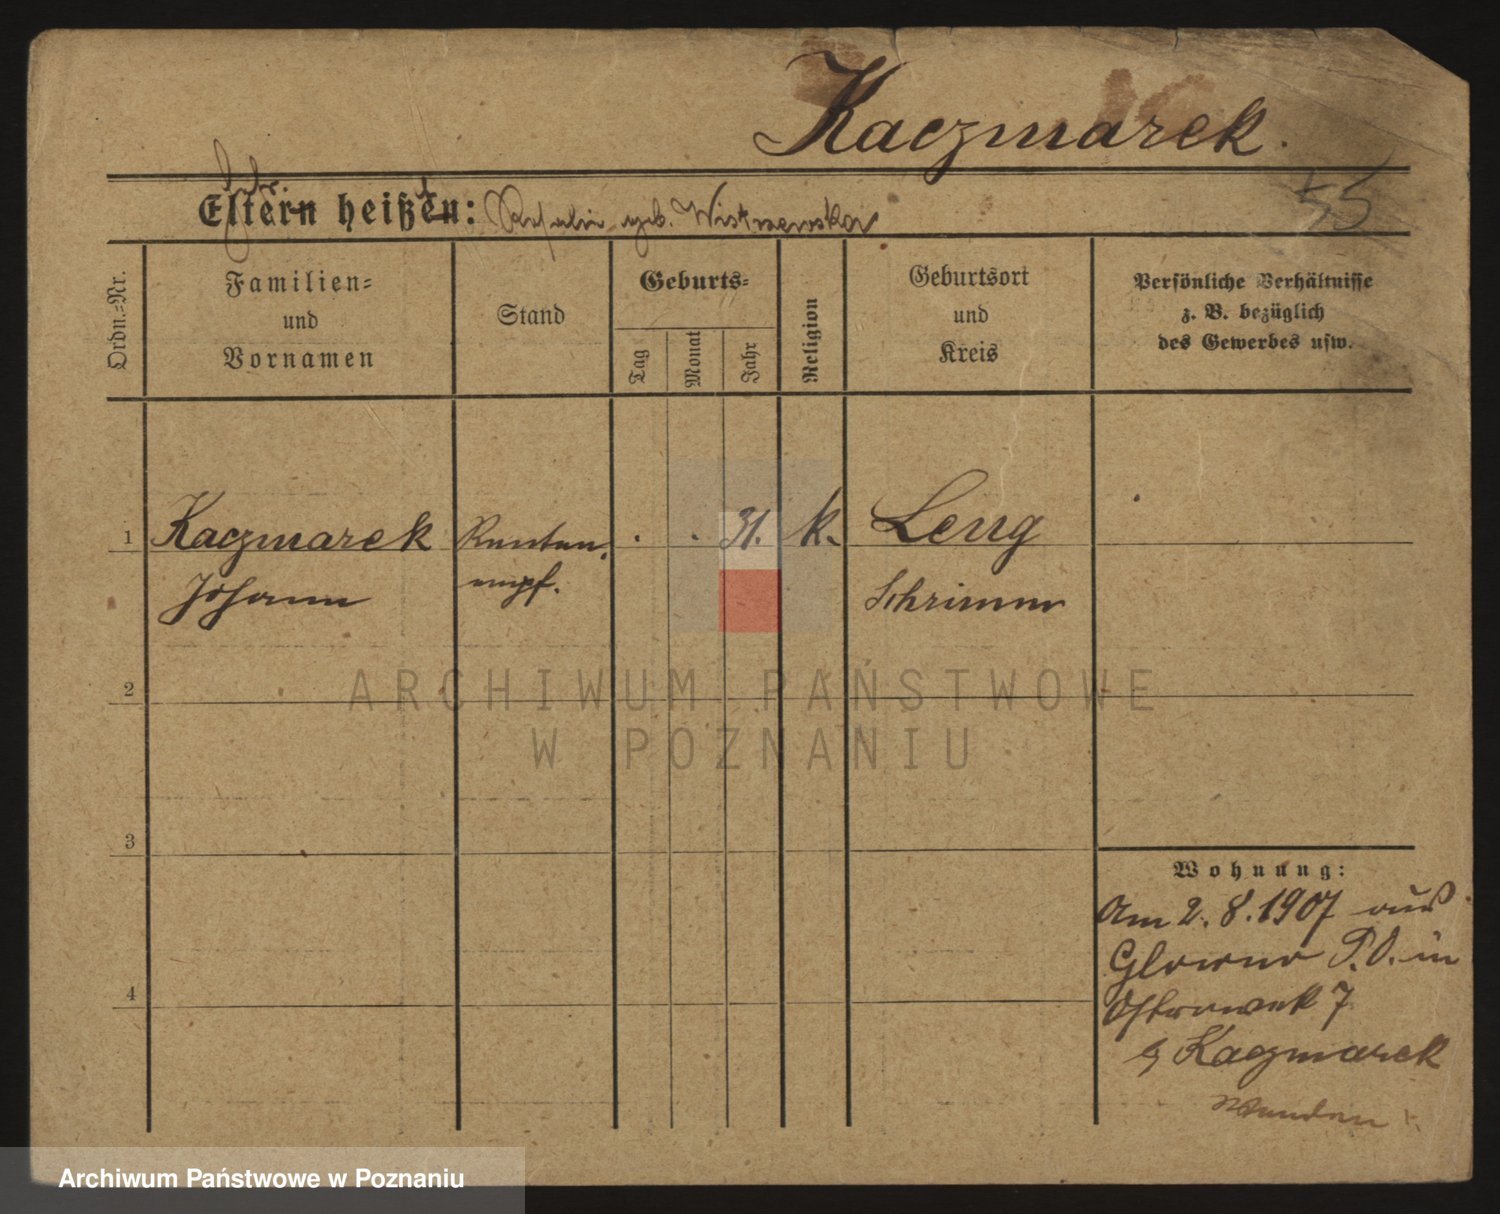 Kaczmarek.
55
Eltern heißen: Rosalie geb. Wisniewska
Ordn.-Nr.
Familien-
und
Vornamen
Stand
Geburts-
Tag
Monat
Jahr
Religion
Geburtsort
und
Kreis
Persönliche Verhältnisse
z. B. bezüglich
des Gewerbes usw.
1 Kaczmarek Renten. . . 31. k. Leng
Johann empf. Schrimm
2
3
4
Wohnung:
Am 2. 8. 1907 aus
Glowno P.O. in
Ostrowek 7
Kaczmarek
ARCHIWUM PAŃSTWOWE
W POZNANIU
Archiwum Państwowe w Poznaniu